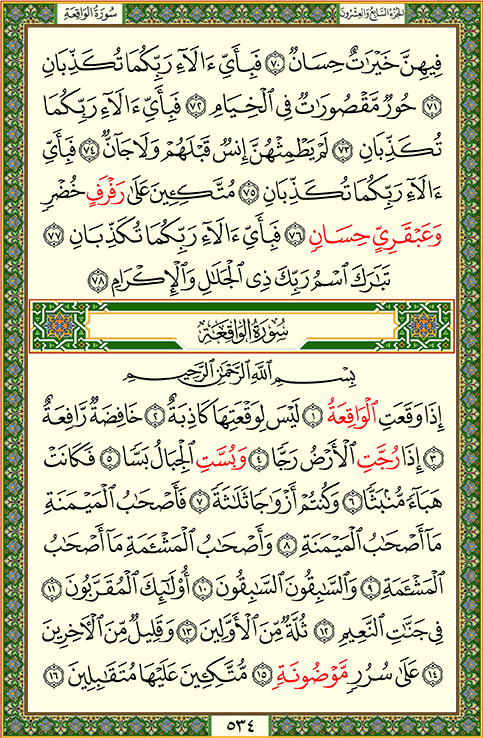 سُورَةُ الوَاقِعَةِ
الجُزءُ السَّابِعُ وَالعِشرُونَ
فِيهِنَّ خَيْرَٰتٌ حِسَانٌ ۝٧٠ فَبِأَيِّ ءَالَآءِ رَبِّكُمَا تُكَذِّبَانِ
۝٧١ حُورٌ مَّقْصُورَٰتٌ فِي ٱلْخِيَامِ ۝٧٢ فَبِأَيِّ ءَالَآءِ رَبِّكُمَا
تُكَذِّبَانِ ۝٧٣ لَمْ يَطْمِثْهُنَّ إِنسٌ قَبْلَهُمْ وَلَا جَآنٌّ ۝٧٤ فَبِأَيِّ
ءَالَآءِ رَبِّكُمَا تُكَذِّبَانِ ۝٧٥ مُتَّكِـِٔينَ عَلَىٰ رَفْرَفٍ خُضْرٍ
وَعَبْقَرِيٍّ حِسَانٍ ۝٧٦ فَبِأَيِّ ءَالَآءِ رَبِّكُمَا تُكَذِّبَانِ ۝٧٧
تَبَٰرَكَ ٱسْمُ رَبِّكَ ذِي ٱلْجَلَٰلِ وَٱلْإِكْرَامِ ۝٧٨
سُورَةُ الوَاقِعَةِ
بِسْمِ ٱللَّهِ ٱلرَّحْمَٰنِ ٱلرَّحِيمِ
إِذَا وَقَعَتِ ٱلْوَاقِعَةُ ۝١ لَيْسَ لِوَقْعَتِهَا كَاذِبَةٌ ۝٢ خَافِضَةٌ رَّافِعَةٌ
۝٣ إِذَا رُجَّتِ ٱلْأَرْضُ رَجًّا ۝٤ وَبُسَّتِ ٱلْجِبَالُ بَسًّا ۝٥ فَكَانَتْ
هَبَآءً مُّنۢبَثًّا ۝٦ وَكُنتُمْ أَزْوَٰجًا ثَلَٰثَةً ۝٧ فَأَصْحَٰبُ ٱلْمَيْمَنَةِ
مَآ أَصْحَٰبُ ٱلْمَيْمَنَةِ ۝٨ وَأَصْحَٰبُ ٱلْمَشْـَٔمَةِ مَآ أَصْحَٰبُ
ٱلْمَشْـَٔمَةِ ۝٩ وَٱلسَّٰبِقُونَ ٱلسَّٰبِقُونَ ۝١٠ أُو۟لَٰٓئِكَ ٱلْمُقَرَّبُونَ ۝١١
فِي جَنَّٰتِ ٱلنَّعِيمِ ۝١٢ ثُلَّةٌ مِّنَ ٱلْأَوَّلِينَ ۝١٣ وَقَلِيلٌ مِّنَ ٱلْـَٔاخِرِينَ
۝١٤ عَلَىٰ سُرُرٍ مَّوْضُونَةٍ ۝١٥ مُّتَّكِـِٔينَ عَلَيْهَا مُتَقَٰبِلِينَ ۝١٦
٥٣٤